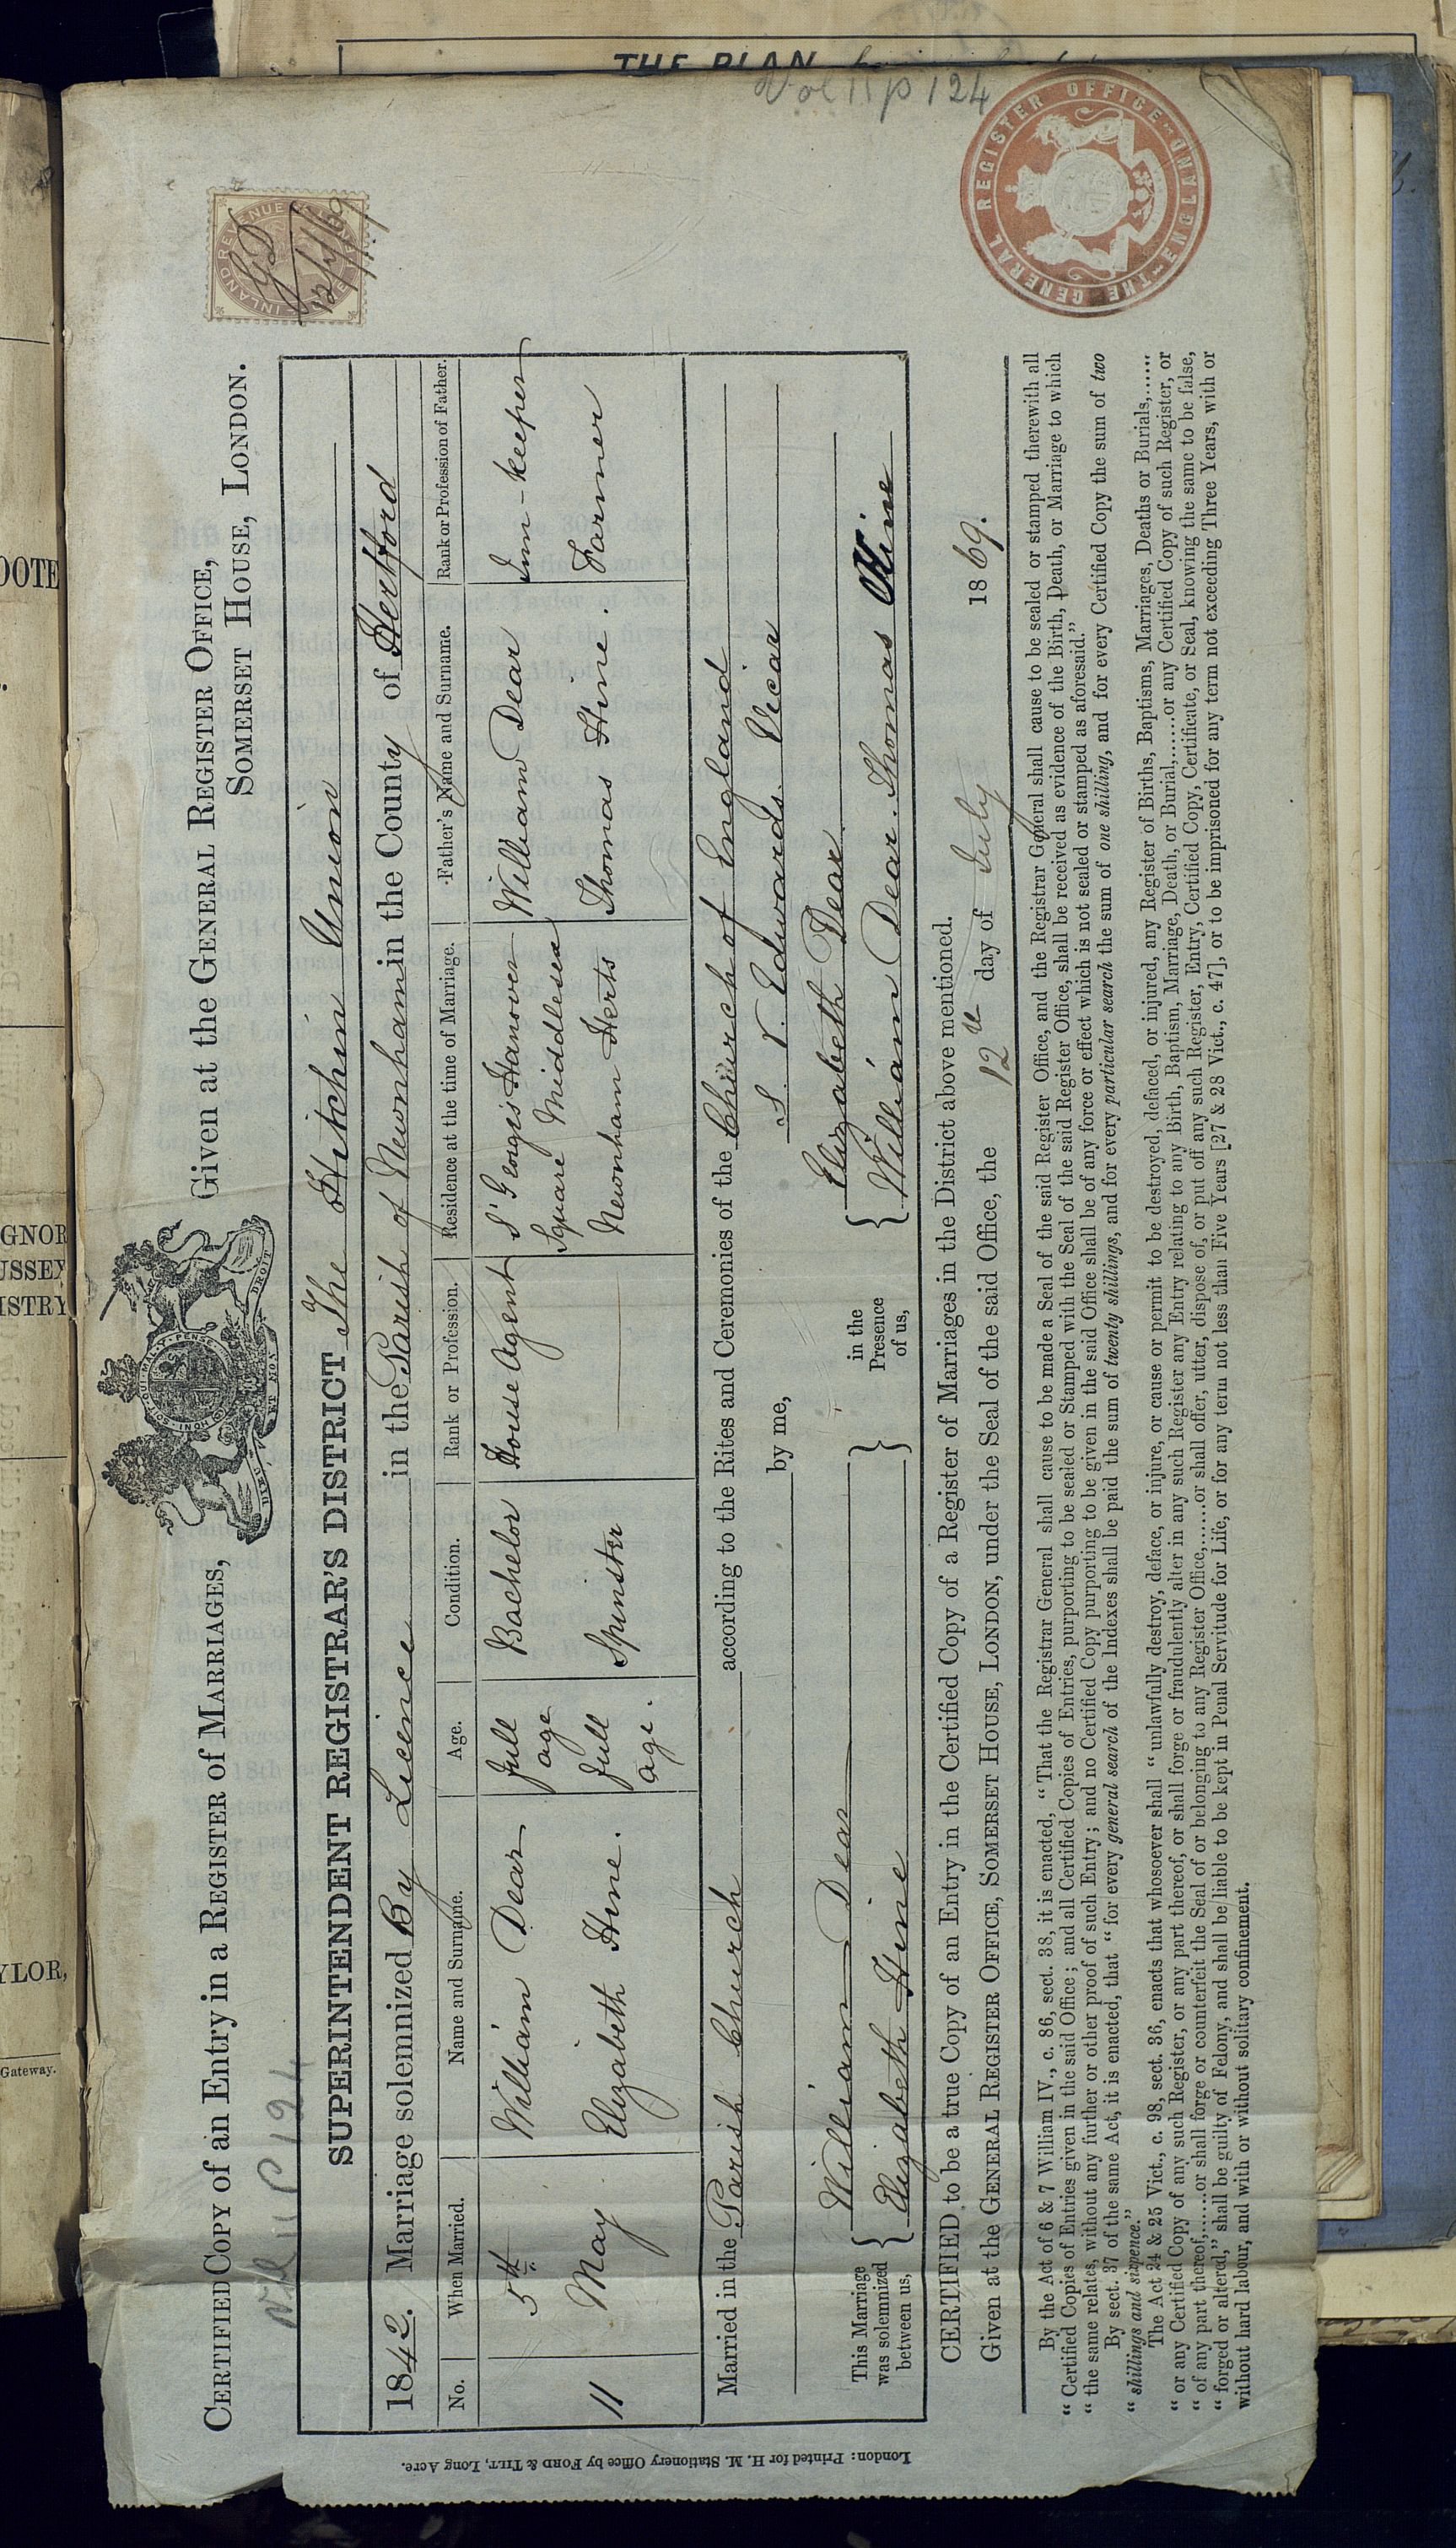 CERTIFIED COPY of an Entry in a REGISTER OF MARRIAGES,
Given at the GENERAL REGISTER OFFICE,
SOMERSET HOUSE, LONDON.
HONI SOIT QUI MAL Y PENSE
DIEU ET MON DROIT
INLAND REVENUE
GD
12/7/69
Vol 11 p 124
SUPERINTENDENT REGISTRAR'S DISTRICT The Hitchin Union
1842. Marriage solemnized By Licence in the Parish of Newnham in the County of Hertford
No. When Married. Name and Surname. Age. Condition. Rank or Profession. Residence at the time of Marriage. Father's Name and Surname. Rank or Profession of Father.
11 5th May William Dear full age Bachelor House Agent St Georges Hanover Square Middlesex William Dear Inn-keeper
Elizabeth Hine. full age. Spinster Newnham Herts Thomas Hine. Farmer
Married in the Parish Church according to the Rites and Ceremonies of the Church of England
by me, S. V. Edwards. Vicar
This Marriage was solemnized between us, { William Dear } in the Presence of us, { Elizabeth Dear.
Elizabeth Hine William Dear. Thomas Hine
CERTIFIED to be a true Copy of an Entry in the Certified Copy of a Register of Marriages in the District above mentioned.
Given at the GENERAL REGISTER OFFICE, SOMERSET HOUSE, LONDON, under the Seal of the said Office, the 12th day of July 1869.
By the Act of 6 & 7 William IV., c. 86, sect. 38, it is enacted, "That the Registrar General shall cause to be made a Seal of the said Register Office, and the Registrar General shall cause to be sealed or stamped therewith all
"Certified Copies of Entries given in the said Office; and all Certified Copies of Entries, purporting to be sealed or Stamped with the Seal of the said Register Office, shall be received as evidence of the Birth, Death, or Marriage to which
"the same relates, without any further or other proof of such Entry; and no Certified Copy purporting to be given in the said Office shall be of any force or effect which is not sealed or stamped as aforesaid."
By sect. 37 of the same Act, it is enacted, that "for every general search of the Indexes shall be paid the sum of twenty shillings, and for every particular search the sum of one shilling, and for every Certified Copy the sum of two
"shillings and sixpence."
The Act 24 & 25 Vict., c. 98, sect. 36, enacts that whosoever shall "unlawfully destroy, deface, or injure, or cause or permit to be destroyed, defaced, or injured, any Register of Births, Baptisms, Marriages, Deaths or Burials,......
"or any Certified Copy of any such Register, or any part thereof, or shall forge or fraudulently alter in any such Register any Entry relating to any Birth, Baptism, Marriage, Death, or Burial,......or any Certified Copy of such Register, or
"of any part thereof,......or shall forge or counterfeit the Seal of or belonging to any Register Office,......or shall offer, utter, dispose of, or put off any such Register, Entry, Certified Copy, Certificate, or Seal, knowing the same to be false,
"forged or altered," shall be guilty of Felony, and shall be liable to be kept in Penal Servitude for Life, or for any term not less than Five Years [27 & 28 Vict., c. 47], or to be imprisoned for any term not exceeding Three Years, with or
without hard labour, and with or without solitary confinement.
London: Printed for H. M. Stationery Office by FORD & TILT, Long Acre.
THE GENERAL REGISTER OFFICE ENGLAND
Vol 11 p 124
THE PLAN
YLOR,
Gateway.